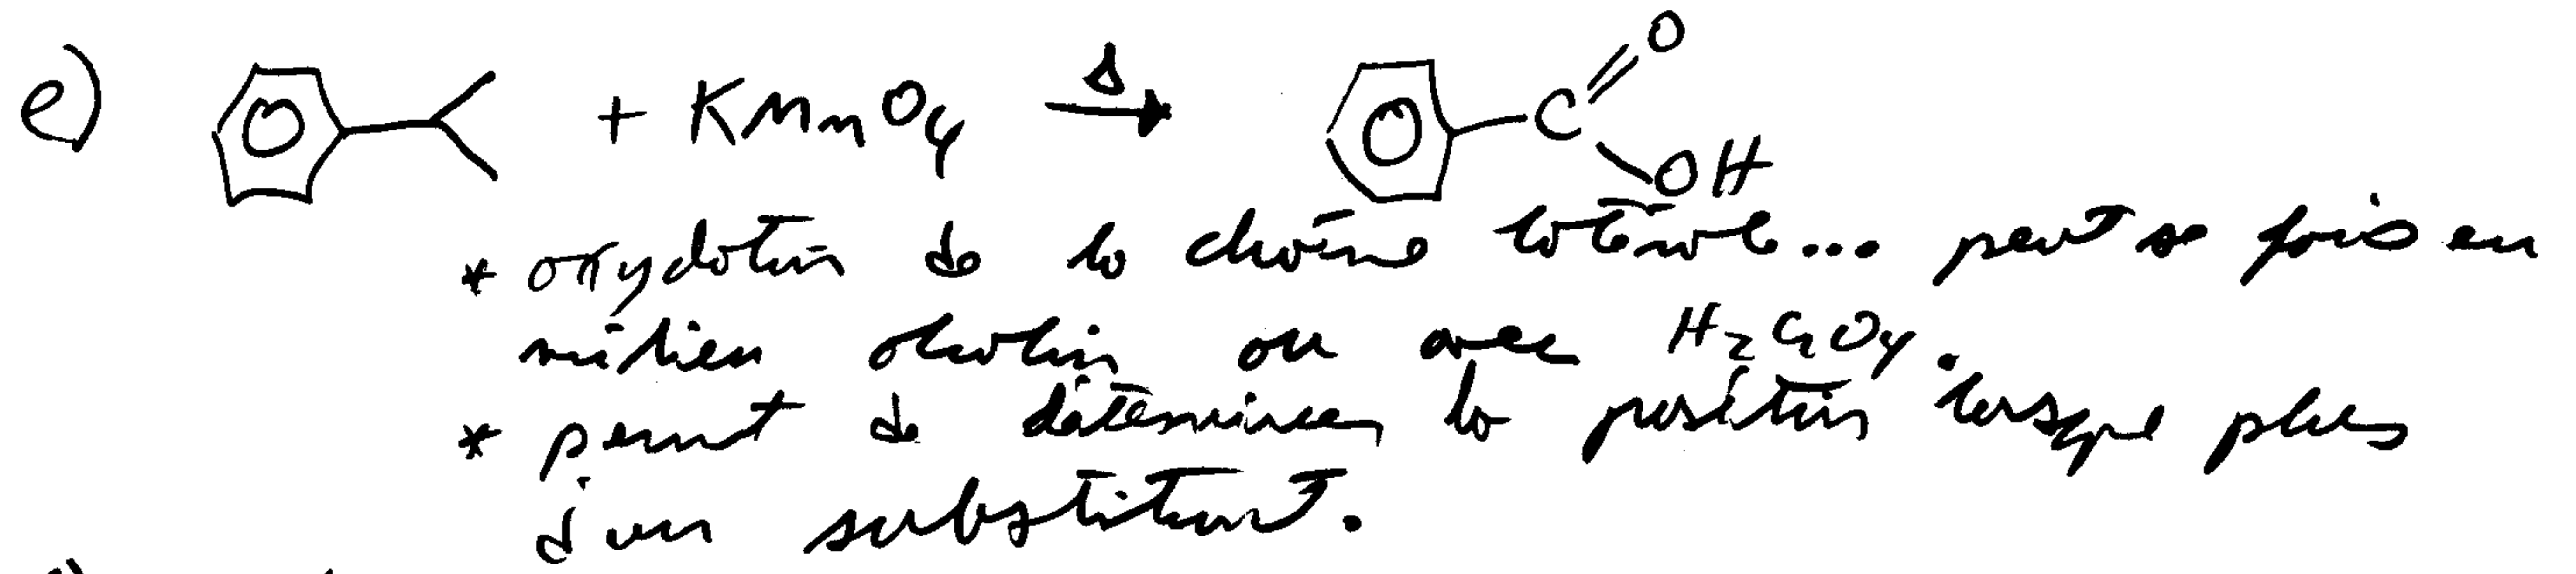 e) + KMnO4 Δ → C O OH
* oxydation de la chaîne latérale... peut se faire en
milieu alcalin ou avec H2CrO4.
* permet de déterminer la position lorsque plus
d'un substituant.